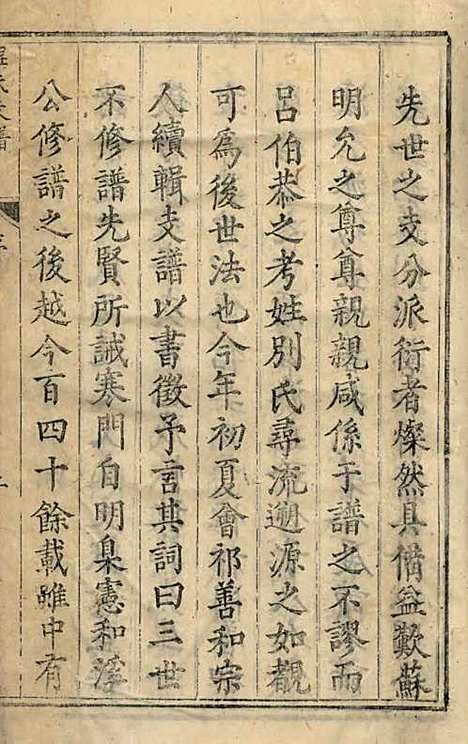 先世之支分派衍者燦然具偹益歎蘇
明允之尊尊親親咸係于譜之不謬而
呂伯恭之考姓別氏尋流遡源之如觀
可為後世法也今年初夏會祁善和宗
人續輯支譜以書徵予言其詞曰三世
不修譜先賢所誡寒門自明臬憲和溪
公修譜之後越今百四十餘載雖中有